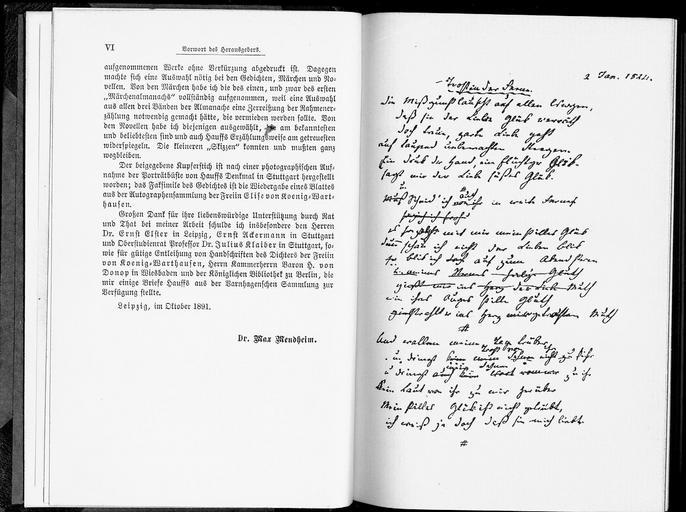 VI
Vorwort des Herausgebers.
aufgenommenen Werke ohne Verkürzung abgedruckt ist. Dagegen
machte sich eine Auswahl nötig bei den Gedichten, Märchen und No-
vellen. Von den Märchen habe ich die des einen, und zwar des ersten
„Märchenalmanachs“ vollständig aufgenommen, weil eine Auswahl
aus allen drei Bänden der Almanache eine Zerreißung der Rahmener-
zählung notwendig gemacht hätte, die vermieden werden sollte. Von
den Novellen habe ich diejenigen ausgewählt, am bekanntesten
und beliebtesten sind und auch Hauffs Erzählungsweise am getreuesten
widerspiegeln. Die kleineren „Skizzen“ konnten und mußten ganz
wegbleiben.
Der beigegebene Kupferstich ist nach einer photographischen Auf-
nahme der Porträtbüste von Hauffs Denkmal in Stuttgart hergestellt
worden; das Faksimile des Gedichtes ist die Wiedergabe eines Blattes
aus der Autographensammlung der Freiin Elise von Koenig-Wart-
hausen.
Großen Dank für ihre liebenswürdige Unterstützung durch Rat
und That bei meiner Arbeit schulde ich insbesondere den Herren
Dr. Ernst Elster in Leipzig, Ernst Ackermann in Stuttgart
und Oberstudienrat Professor Dr. Julius Klaiber in Stuttgart, so-
wie für gütige Entleihung von Handschriften des Dichters der Freiin
von Koenig-Warthausen, Herrn Kammerherrn Baron H. von
Donop in Wiesbaden und der Königlichen Bibliothek zu Berlin, die
mir einige Briefe Hauffs aus der Varnhagenschen Sammlung zur
Verfügung stellte.
Leipzig, im Oktober 1891.
Dr. Max Mendheim.
2 Jan.
Trost in der Ferne.
die Mißgunst lauscht auf allen Wegen,
daß sie der Liebe Glück
doch treu, zarte Liebe geht
auf tausend unbewachten Stegen.
Ein Druck der Hand, ein flüchtiger Blick
sagt mir der Liebe süßes Glück.
ich in weite Ferne
mit mir mein stilles Glück
schau ich nicht der Lieben Blick
so blick ich auf zum Abendstern
ein ihres Auges stille Gluth
ins Herz Muth
#
Und wallen meine
nicht zu
Kein Laut von ihr zu mir herüber
Mein stilles Glück ist nicht getrübt,
ich weiß ja doch daß sie mich liebt.
#